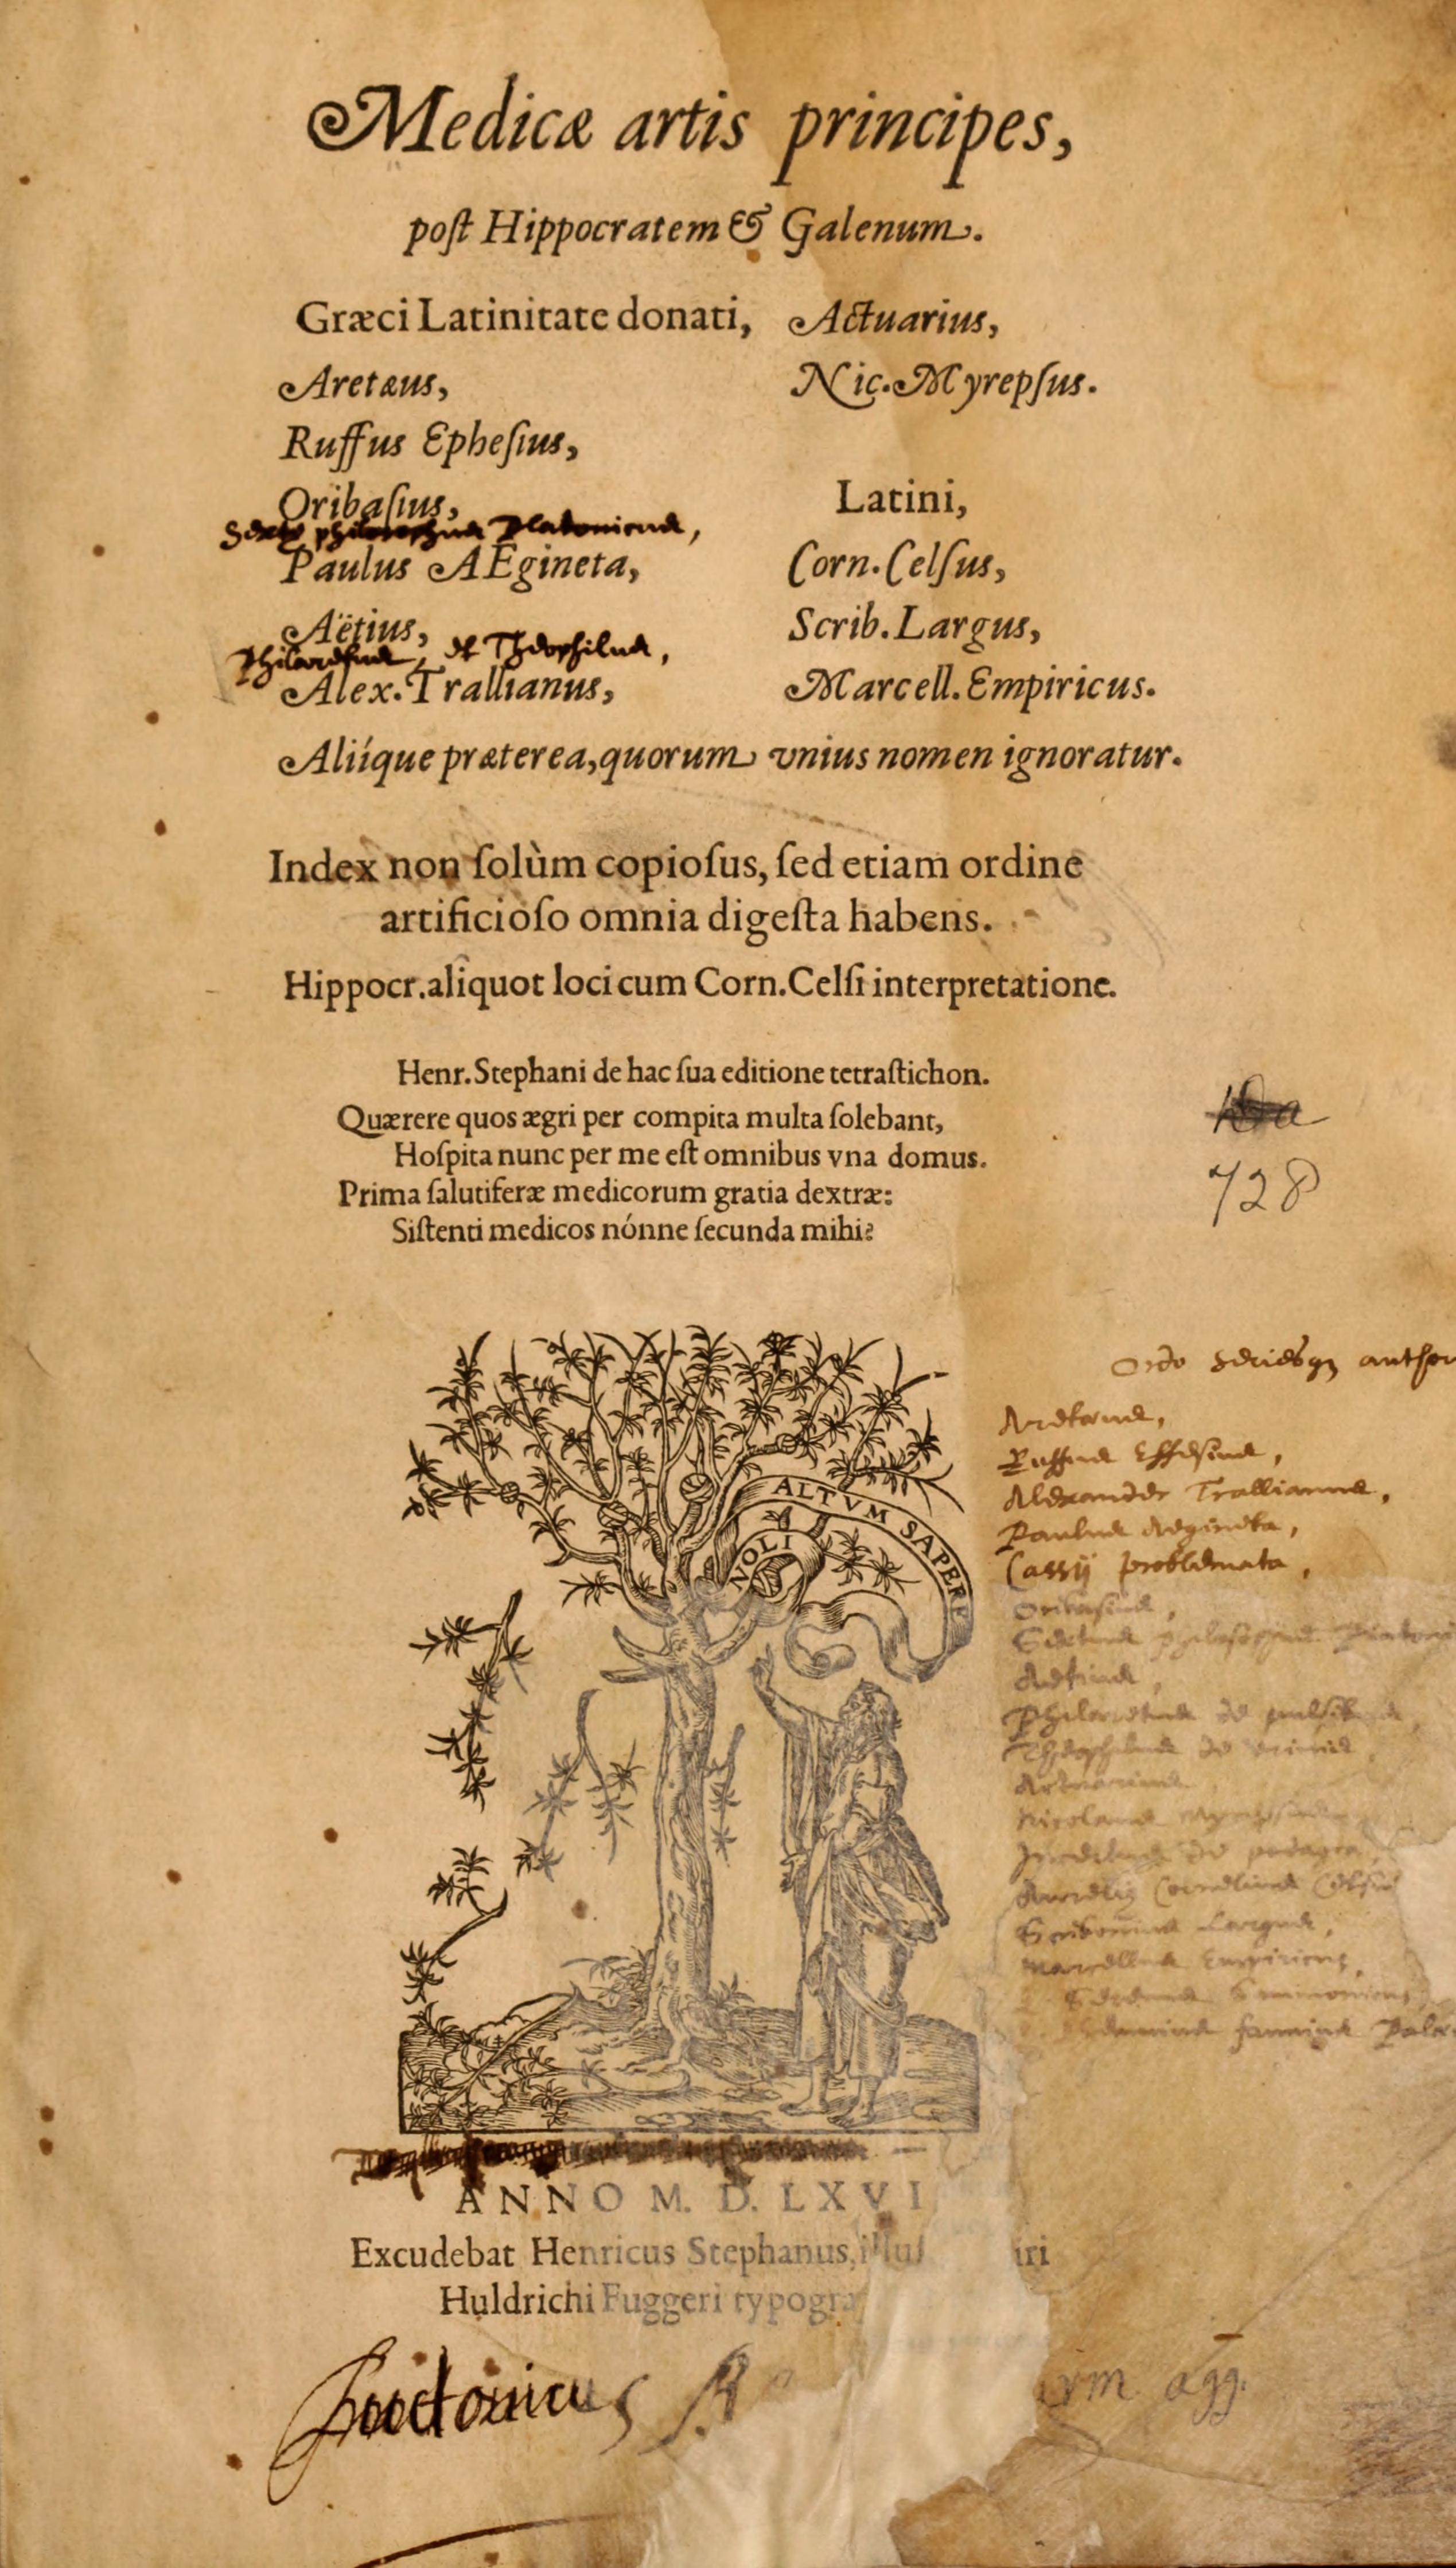 Medicæ artis principes,
poſt Hippocratem & Galenum.
Græci Latinitate donati,
Aretæus,
Ruffus Epheſius,
Oribaſius,
philosophus Platonicus,
Paulus AEgineta,
Aëtius,
Philaretus, et Theophilus,
Alex. Trallianus,
Actuarius,
Nic. Myrepſus.
Latini,
Corn. Celſus,
Scrib. Largus,
Marcell. Empiricus.
Aliíque præterea, quorum vnius nomen ignoratur.
Index non ſolùm copioſus, ſed etiam ordine
artificioſo omnia digeſta habens.
Hippocr. aliquot loci cum Corn. Celſi interpretatione.
Henr. Stephani de hac ſua editione tetraſtichon.
Quærere quos ægri per compita multa ſolebant,
Hoſpita nunc per me eſt omnibus vna domus.
Prima ſalutiferæ medicorum gratia dextræ:
Siſtenti medicos nónne ſecunda mihi?
728
NOLI ALTVM SAPERE
Ordo seriesq3 author
Aretaeus,
Ruffus Effesius,
Alexander Trallianus,
Paulus Aegineta,
Cassij problemata,
Oribasius,
Sextus philosophus
Aetius,
Philaretus de pulsibus,
Theophilus de urinis,
Actuarius
Nicolaus
de podagra,
Cornelius Celsus
Scribonius Largus,
Marcellus Empiricus,
Serenus
ANNO M. D. LXVI
Excudebat Henricus Stephanus, illuſ iri
Huldrichi Fuggeri typogra
agg.